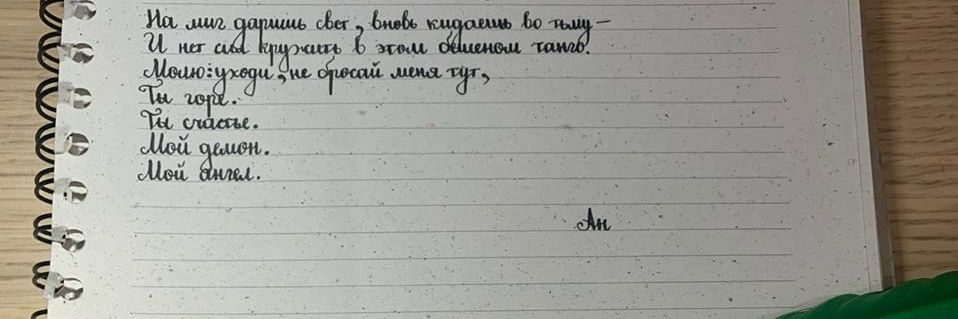 На миг даришь свет, вновь кидаешь во тьму –
И нет сил кружить в этом бешеном танго.
Молю: уходи, не бросай меня тут,
Ты горе.
Ты счастье.
Мой демон.
Мой ангел.
Ан